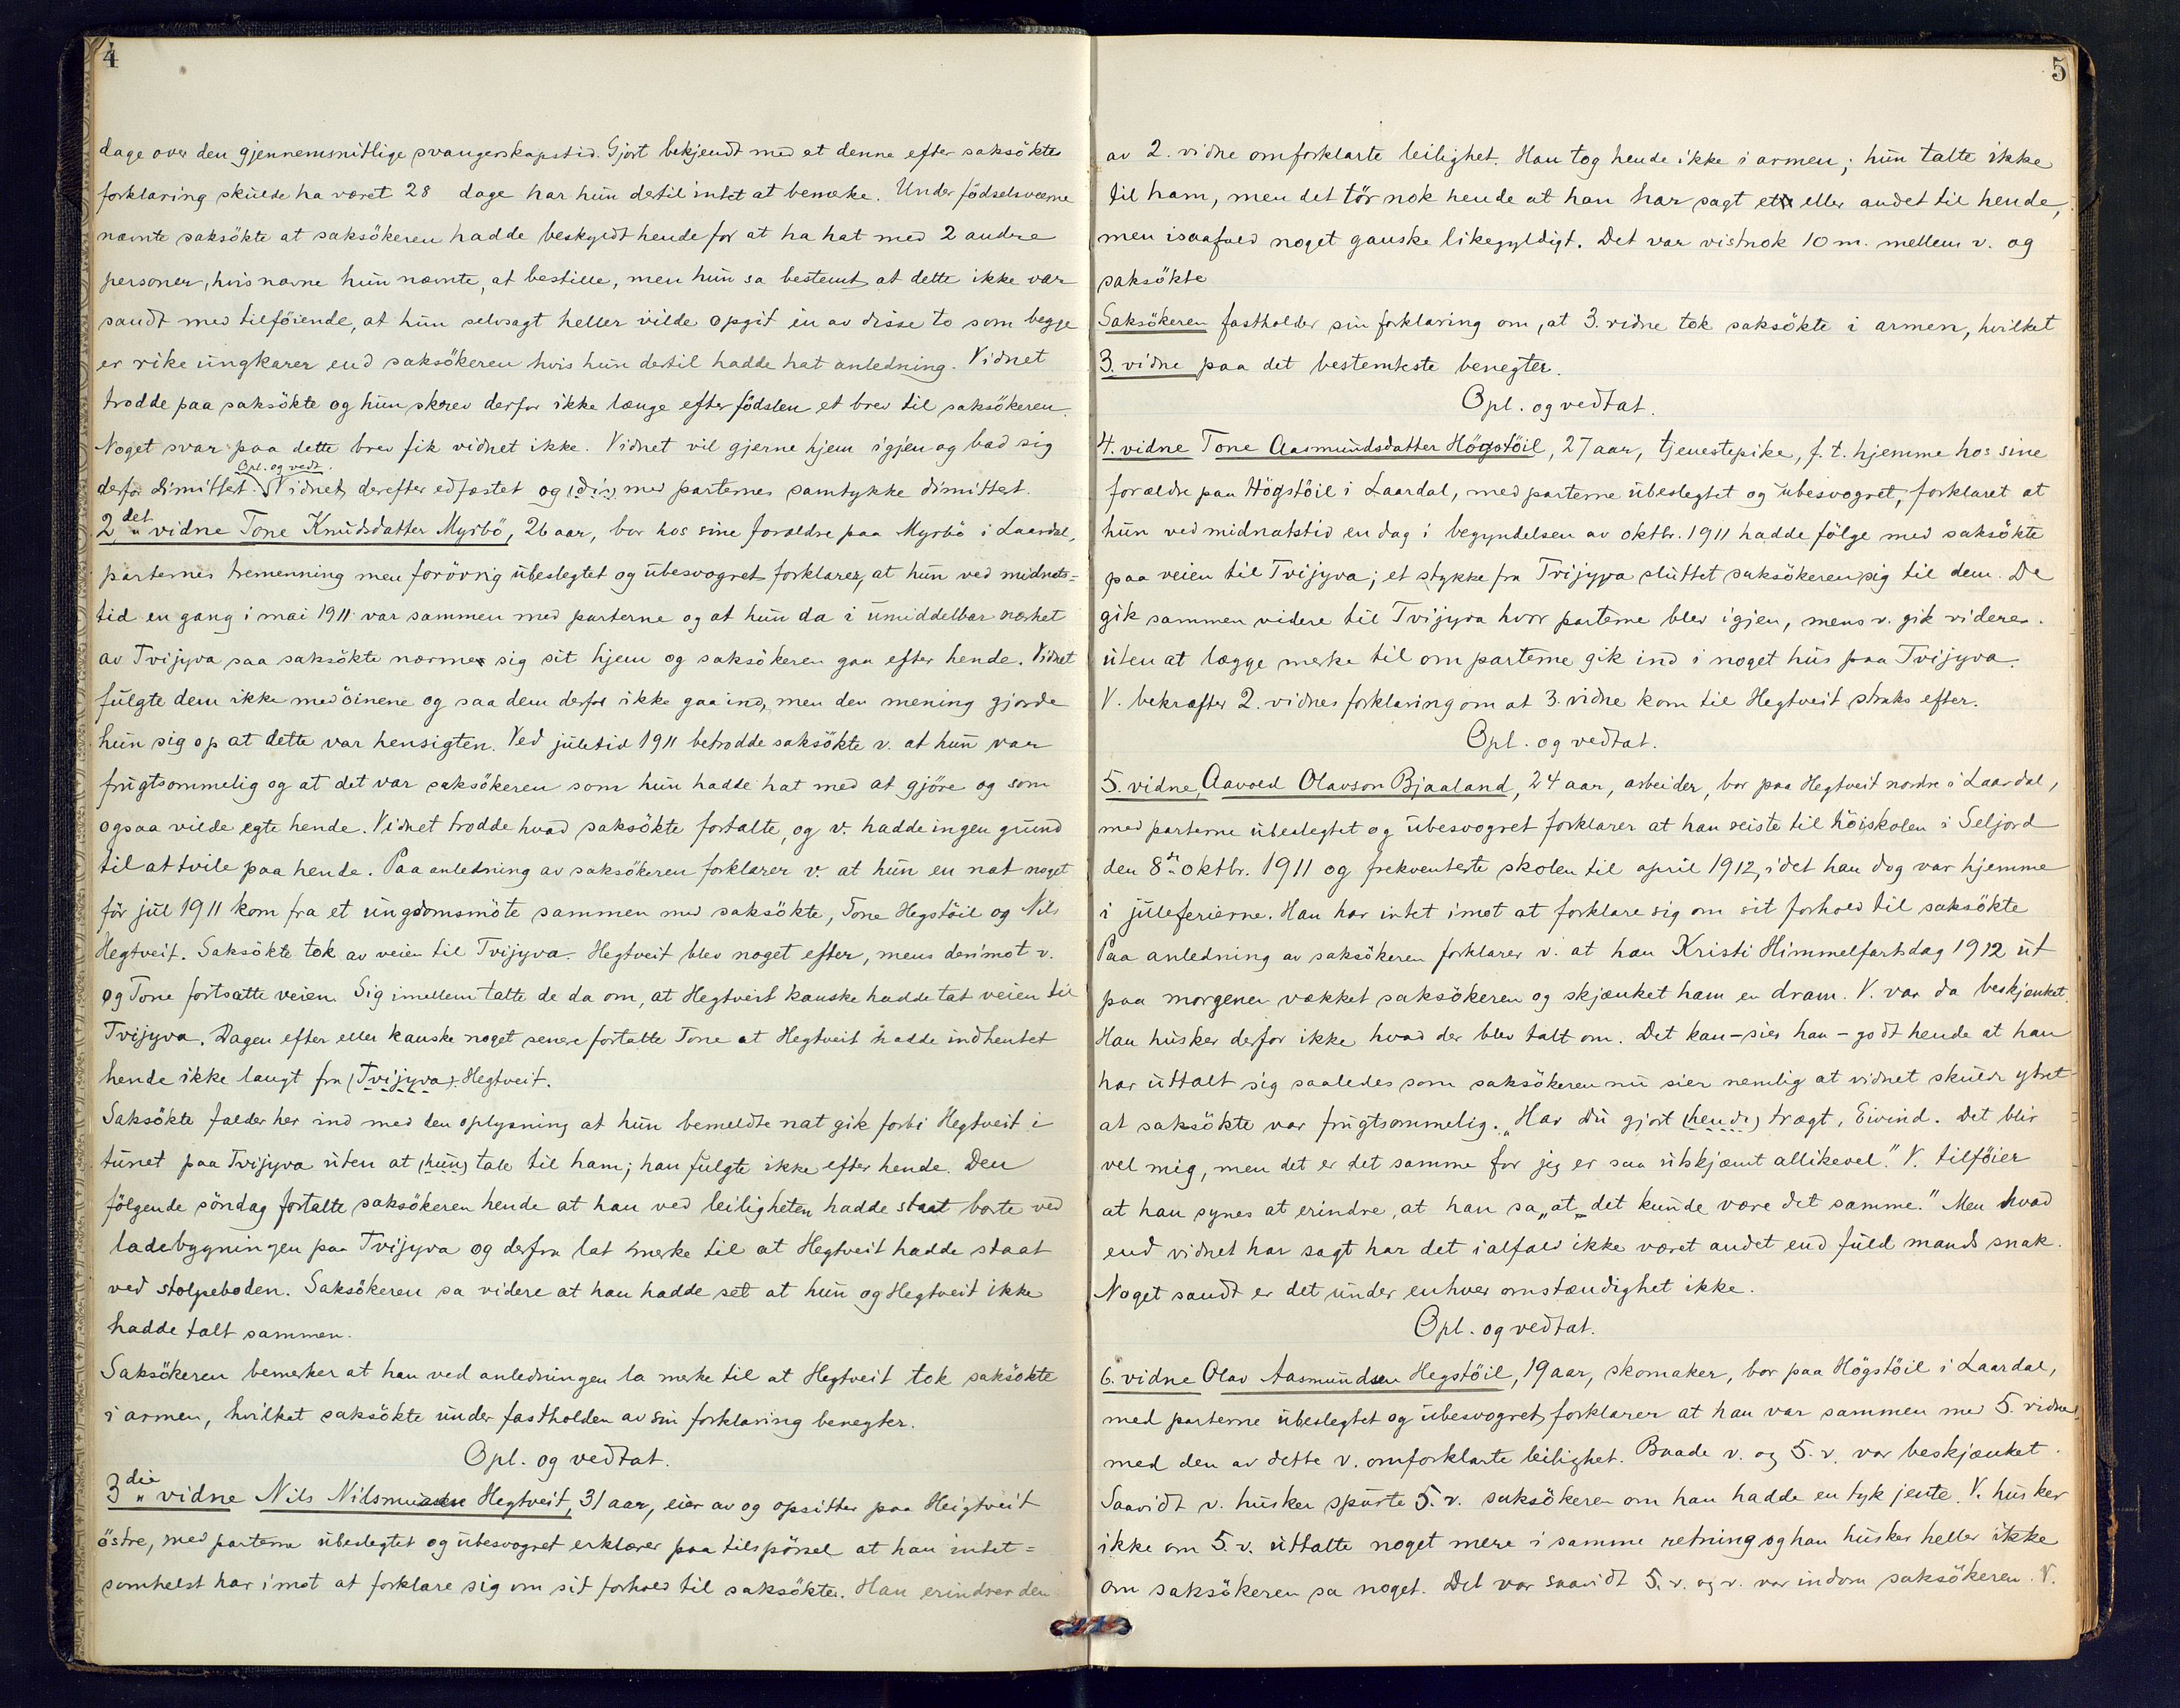 4
dage over den gjennemsnitlige svangerskapstid. Gjort bekjendt med at denne efter saksöktes
forklaring skulde ha været 28 dage har hun dertil intet at bemerke. Under födselsveerne
nævnte saksökte at saksökeren hadde beskyldt hende for at ha hat med 2 andre
personer, hvis navne hun nævnte, at bestille, men hun sa bestemt at dette ikke var
sandt med tilföiende, at hun selvsagt heller vilde opgit en av disse to som begge
er rike ungkarer end saksökeren hvis hun dertil hadde hat anledning. Vidnet
trodde paa saksökte og hun skrev derfor ikke længe efter födslen et brev til saksökeren.
Noget svar paa dette brev fik vidnet ikke. Vidnet vil gjerne hjem igjen og bad sig
Opl. og vedt.
derfor dimittert. Vidnet derefter edfæstet og (di) med parternes samtykke dimittert.
2det vidne Tone Knudsdatter Myrbö, 26 aar, bor hos sine forældre paa Myrbö i Laardal,
parternes tremenning men forövrig ubeslegtet og ubesvogret forklarer, at hun ved midnats=
tid en gang i mai 1911 var sammen med parterne og at hun da i umiddelbar nærhet
av Tvijyva saa saksökte nærme sig sit hjem og saksökeren gaa efter hende. Vidnet
fulgte dem ikke med öinene og saa dem derfor ikke gaa ind, men den mening gjorde
hun sig op at dette var hensigten. Ved juletid 1911 betrodde saksökte v. at hun var
frugtsommelig og at det var saksökeren som hun hadde hat med at gjöre og som
ogsaa vilde egte hende. Vidnet trodde hvad saksökte fortalte, og v. hadde ingen grund
til at tvile paa hende. Paa anledning av saksökeren forklarer v. at hun en nat noget
för jul 1911 kom fra et ungdomsmöte sammen med saksökte, Tone Hegstöil og Nils
Hegtveit. Saksökte tok av veien til Tvijyva. Hegtveit blev noget efter, mens derimot v.
og Tone fortsatte veien. Sig imellem talte de da om, at Hegtveit kanske hadde tat veien til
Tvijyva. Dagen efter eller kanske noget senere fortalte Tone at Hegtveit hadde indhentet
hende ikke langt fra (Tvijyva) Hegtveit.
Saksökte falder her ind med den oplysning at hun bemeldte nat gik forbi Hegtveit i
tunet paa Tvijyva uten at (hun) tale til ham; han fulgte ikke efter hende. Den
fölgende söndag fortalte saksökeren hende at han ved leiligheten hadde staat borte ved
ladebygningen paa Tvijyva og derfra lat merke til at Hegtveit hadde staat
ved stolpeboden. Saksökeren sa videre at han hadde set at hun og Hegtveit ikke
hadde talt sammen.
Saksökeren bemerker at han ved anledningen la merke til at Hegtveit tok saksökte
i armen, hvilket saksökte under fastholden av sin forklaring benegter.
Opl. og vedtat.
3die vidne Nils Nilsen Hegtveit, 31 aar, eier av og opsitter paa Heigtveit
östre, med parterne ubeslegtet og ubesvogret erklærer paa tilspörsel at han intet=
somhelst har imot at forklare sig om sit forhold til saksökte. Han erindrer den
5
av 2. vidne omforklarte leilighet. Han tog hende ikke i armen; hun talte ikke
til ham, men det tör nok hende at han har sagt et eller andet til hende,
men isaafald noget ganske likegyldigt. Det var vistnok 10 m. mellem v. og
saksökte
Saksökeren fastholder sin forklaring om, at 3. vidne tok saksökte i armen, hvilket
3. vidne paa det bestemteste benegter.
Opl. og vedtat.
4. vidne Tone Aasmundsdatter Högstöil, 27 aar, tjenestepike, f. t. hjemme hos sine
forældre paa Högstöil i Laardal, med parterne ubeslegtet og ubesvogret, forklaret at
hun ved midnatstid en dag i begyndelsen av oktbr. 1911 hadde fölge med saksökte
paa veien til Tvijyva; et stykke fra Tvijyva sluttet saksökeren sig til dem. De
gik sammen videre til Tvijyva hvor parterne blev igjen, mens v. gik videre.
uten at lægge merke til om parterne gik ind i noget hus paa Tvijyva.
V. bekræfter 2. vidnes forklaring om at 3. vidne kom til Hegtveit straks efter.
Opl. og vedtat.
5. vidne, Aavold Olavson Bjaaland, 24 aar, arbeider, bor paa Hegtveit nordre i Laardal,
med parterne ubeslegtet og ubesvogret forklarer at han reiste til höiskolen i Seljord
den 8de oktbr. 1911 og frekventerte skolen til april 1912, idet han dog var hjemme
i juleferierne. Han har intet imot at forklare sig om sit forhold til saksökte
Paa anledning av saksökeren forklarer v. at han Kristi Himmelfartsdag 1912 ut
paa morgenen vækket saksökeren og skjænket ham en dram. V. var da beskjænket.
Han husker derfor ikke hvad der blev talt om. Det kan – sier han – godt hende at han
har uttalt sig saaledes som saksökeren nu sier nemlig at vidnet skulde ytret
at saksökte var frugtsommelig. „Har du gjort (hende) trægt, Eivind. Det blir
vel mig, men det er det samme for jeg er saa utskjæmt allikevel." V. tilföier
at han synes at erindre, at han sa „at det kunde være det samme." Men hvad
end vidnet har sagt har det ialfald ikke været andet end fuld mands snak.
Noget sandt er det under enhver omstændighet ikke.
Opl. og vedtat.
6. vidne Olav Aasmundsen Hegstöil, 19 aar, skomaker, bor paa Högstöil i Laardal,
med parterne ubeslegtet og ubesvogret, forklarer at han var sammen med 5. vidne
med den av dette v. omforklarte leilighet. Baade v. og 5. v. var beskjænket.
Saavidt v. husker spurte 5. v. saksökeren om han hadde en tyk jente. V. husker
ikke om 5. v. uttalte noget mere i samme retning og han husker heller ikke
om saksökeren sa noget. Det var saavidt 5. v. og v. var indom saksökeren. V.